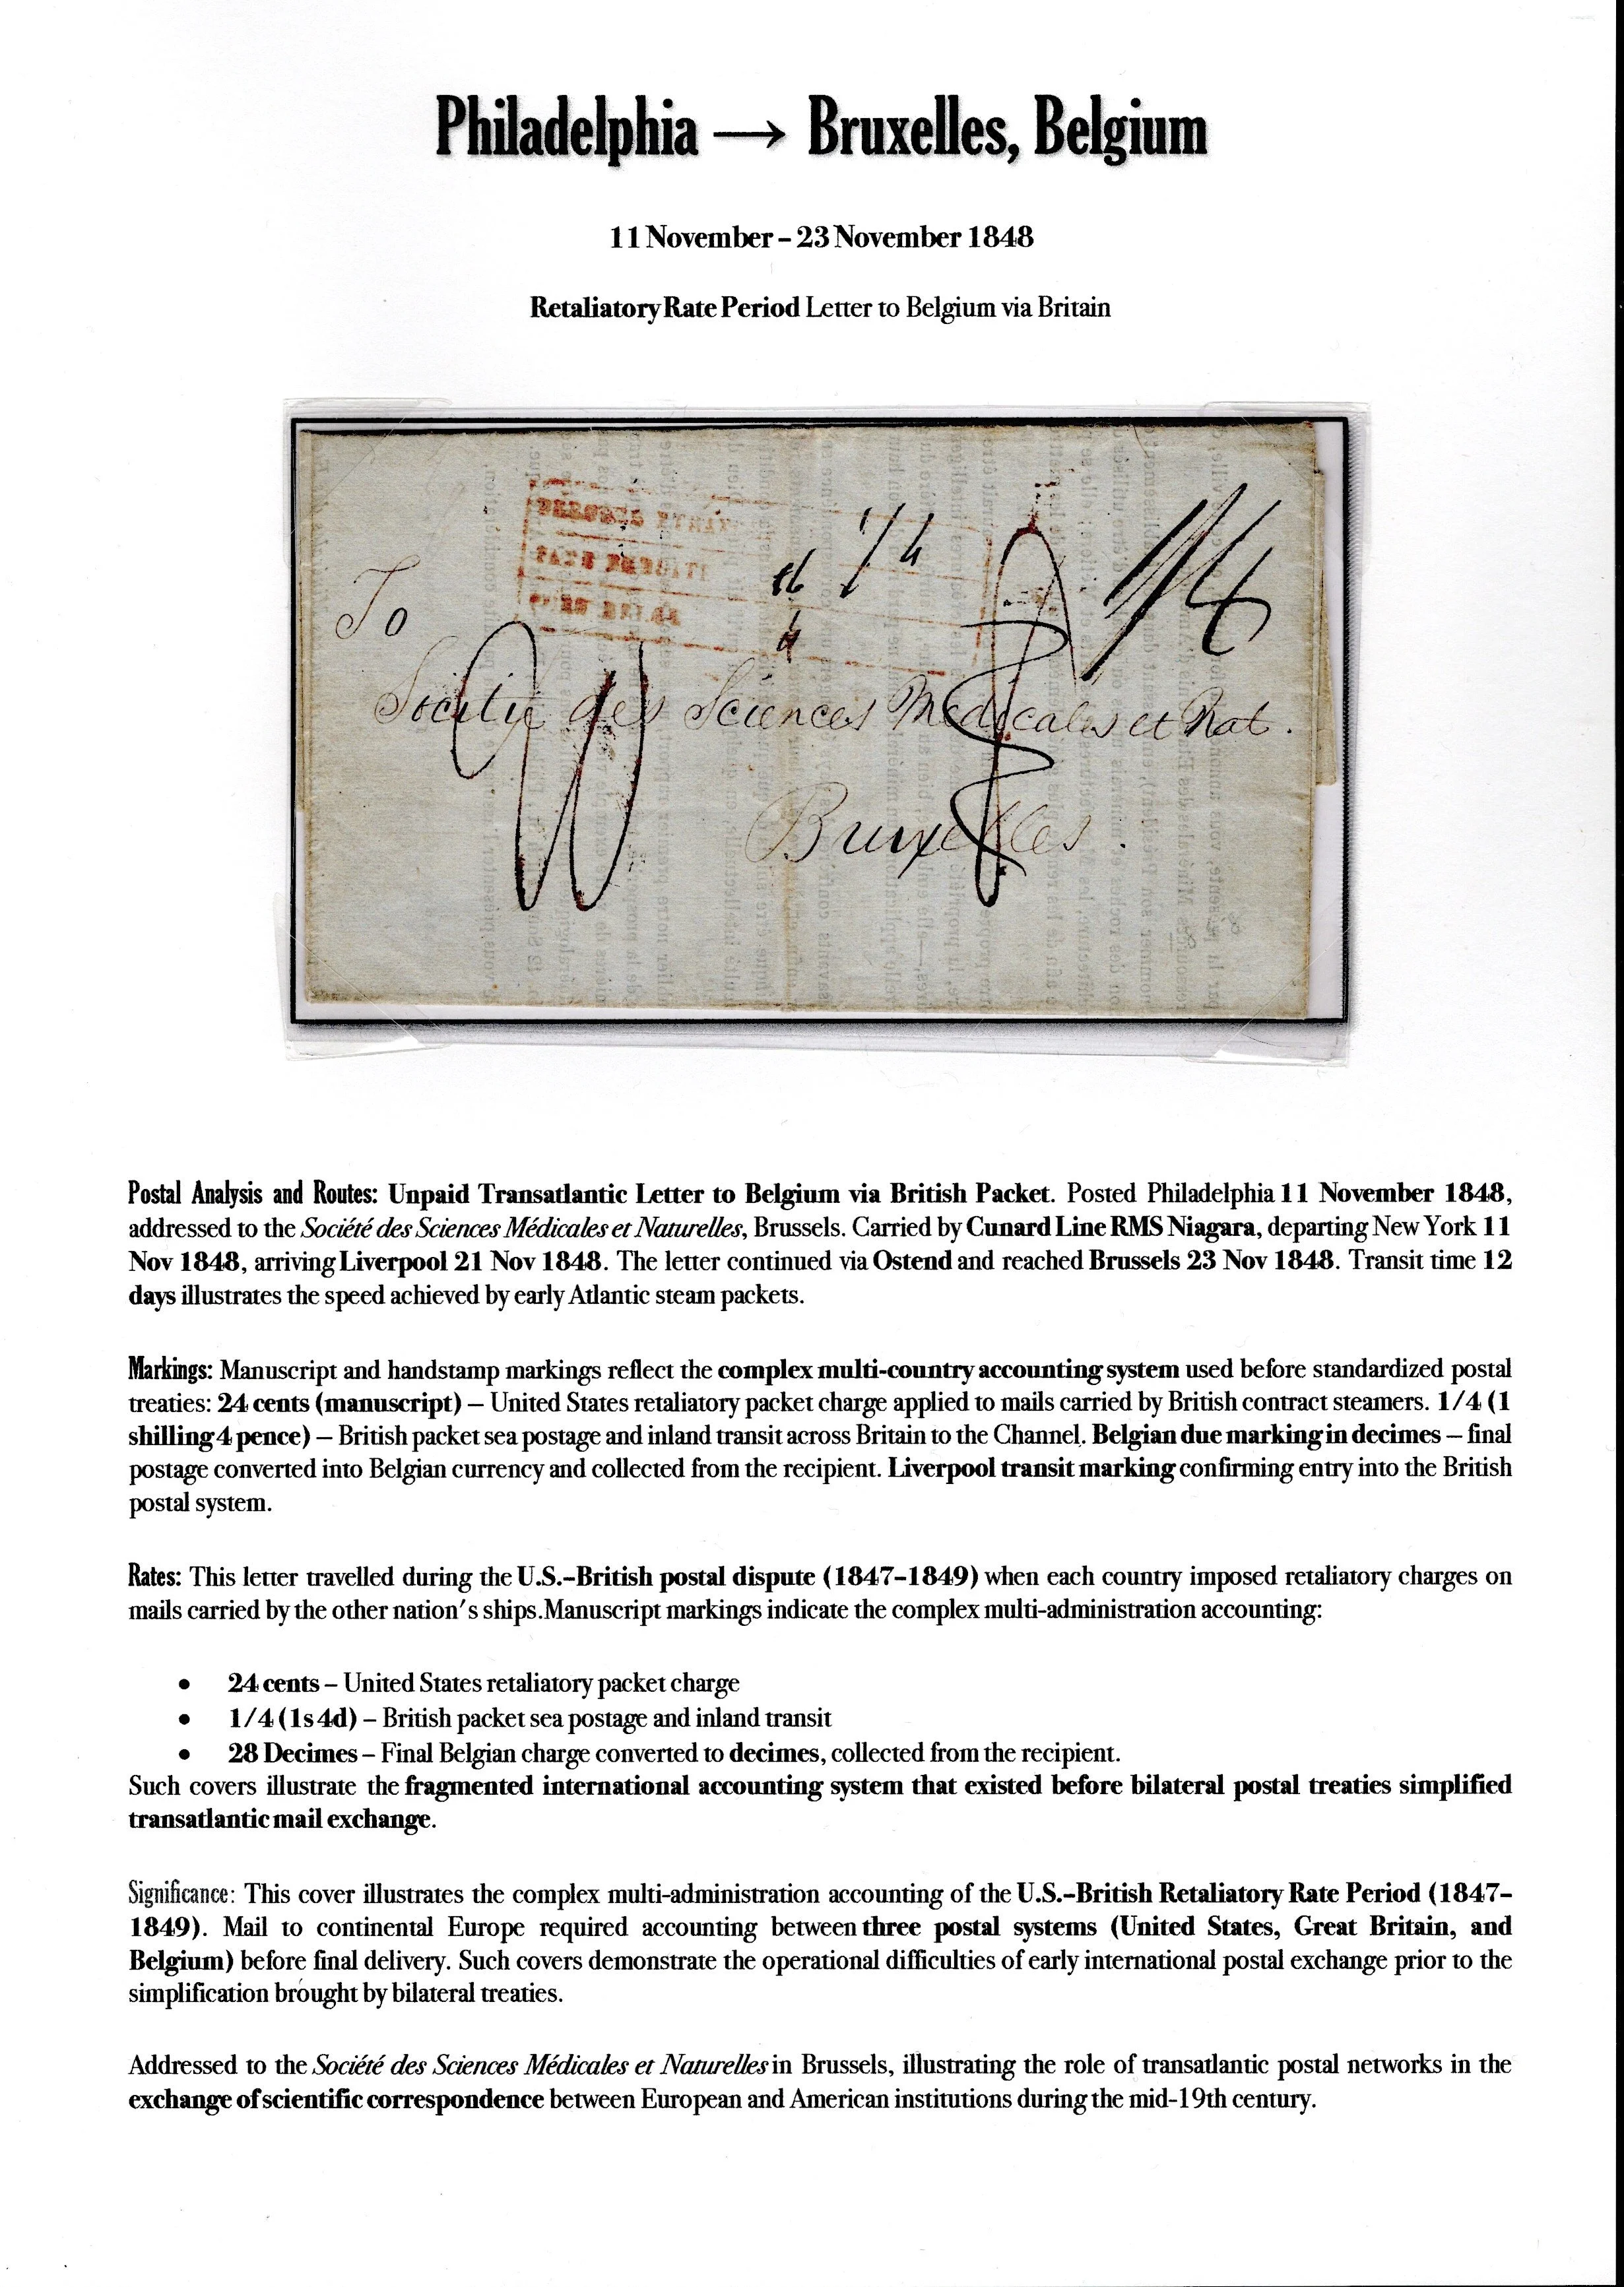 Philadelphia → Bruxelles, Belgium
11 November – 23 November 1848
Retaliatory Rate Period Letter to Belgium via Britain
1/4
1/4
To
Société des Sciences Medicales et Nat.
Bruxelles.
Postal Analysis and Routes: Unpaid Transatlantic Letter to Belgium via British Packet. Posted Philadelphia 11 November 1848,
addressed to the Société des Sciences Médicales et Naturelles, Brussels. Carried by Cunard Line RMS Niagara, departing New York 11
Nov 1848, arriving Liverpool 21 Nov 1848. The letter continued via Ostend and reached Brussels 23 Nov 1848. Transit time 12
days illustrates the speed achieved by early Atlantic steam packets.
Markings: Manuscript and handstamp markings reflect the complex multi-country accounting system used before standardized postal
treaties: 24 cents (manuscript) – United States retaliatory packet charge applied to mails carried by British contract steamers. 1/4 (1
shilling 4 pence) – British packet sea postage and inland transit across Britain to the Channel. Belgian due marking in decimes – final
postage converted into Belgian currency and collected from the recipient. Liverpool transit marking confirming entry into the British
postal system.
Rates: This letter travelled during the U.S.–British postal dispute (1847–1849) when each country imposed retaliatory charges on
mails carried by the other nation's ships.Manuscript markings indicate the complex multi-administration accounting:
• 24 cents – United States retaliatory packet charge
• 1/4 (1s 4d) – British packet sea postage and inland transit
• 28 Decimes – Final Belgian charge converted to decimes, collected from the recipient.
Such covers illustrate the fragmented international accounting system that existed before bilateral postal treaties simplified
transatlantic mail exchange.
Significance: This cover illustrates the complex multi-administration accounting of the U.S.–British Retaliatory Rate Period (1847–
1849). Mail to continental Europe required accounting between three postal systems (United States, Great Britain, and
Belgium) before final delivery. Such covers demonstrate the operational difficulties of early international postal exchange prior to the
simplification brought by bilateral treaties.
Addressed to the Société des Sciences Médicales et Naturelles in Brussels, illustrating the role of transatlantic postal networks in the
exchange of scientific correspondence between European and American institutions during the mid-19th century.